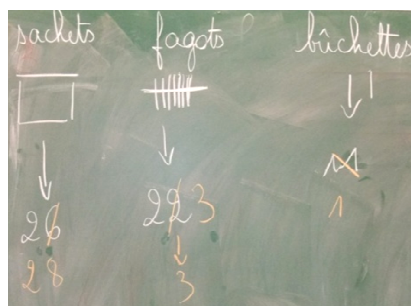 sachets fagots bûchettes
26 223 11
28 3 1